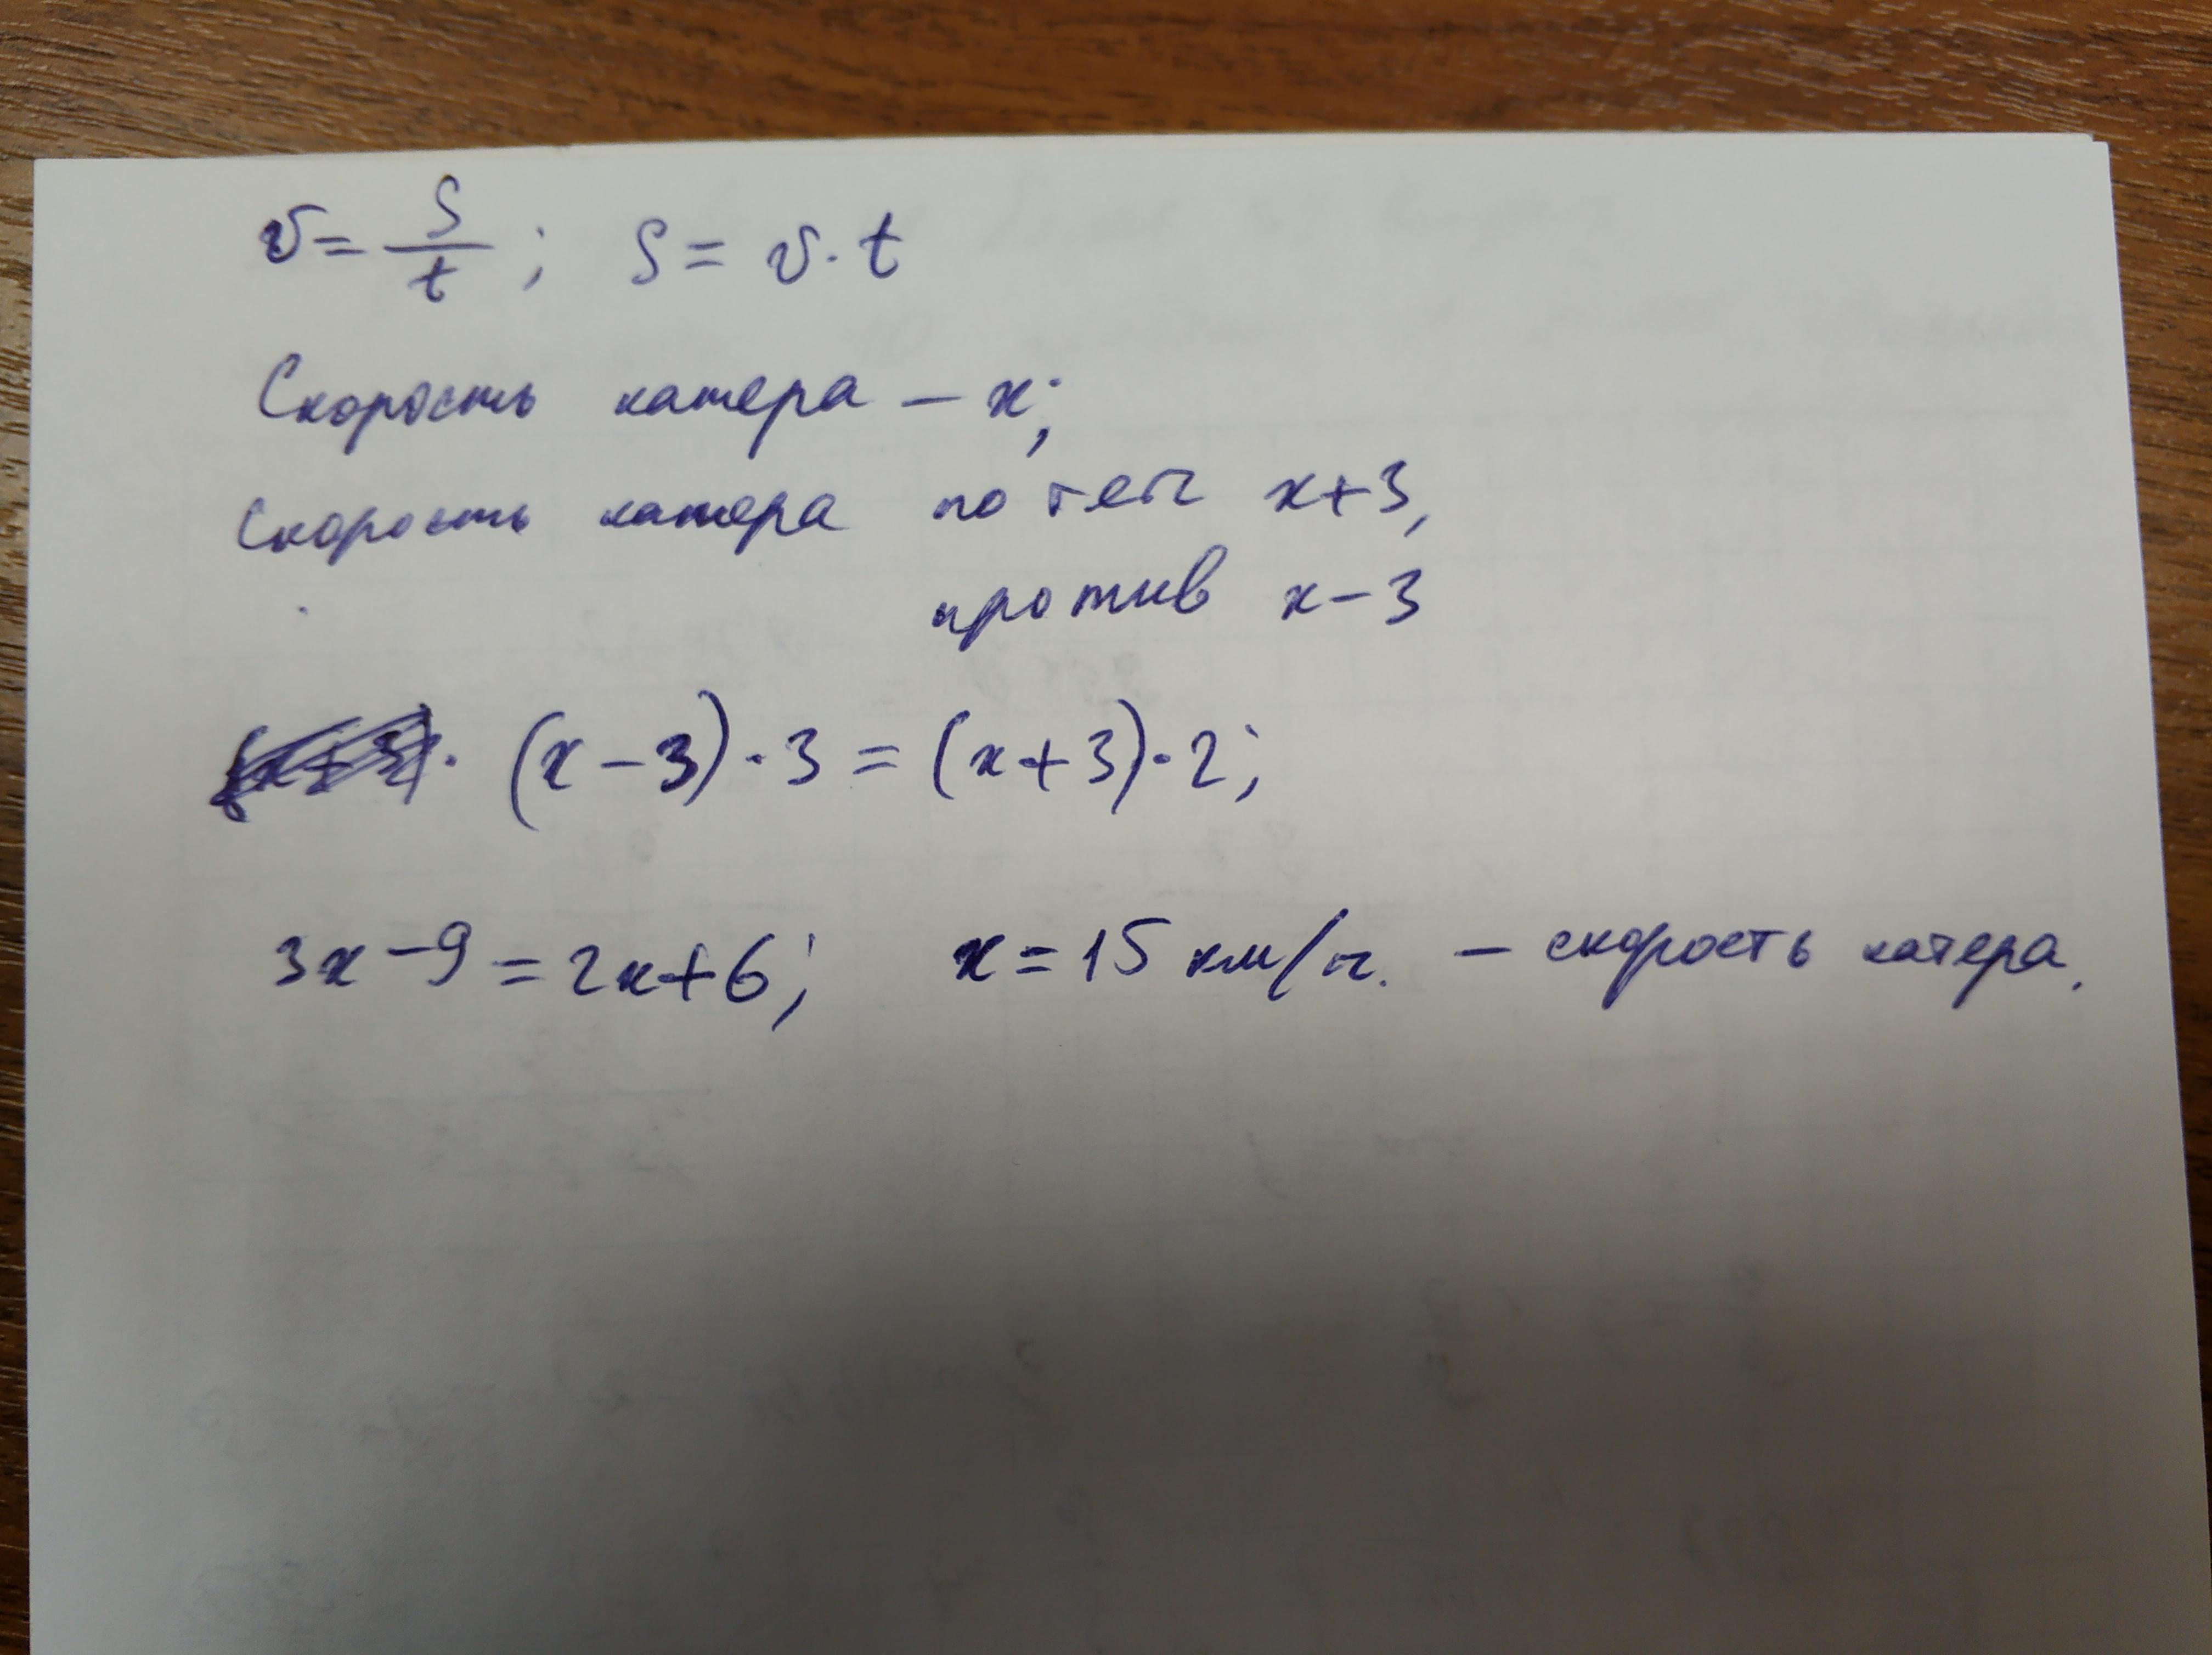 v = S/t ; S = v · t
Скорость катера – x;
Скорость катера по теч x+3,
против x–3
(x–3)·3 = (x+3)·2;
3x–9 = 2x+6; x = 15 км/ч. – скорость катера.